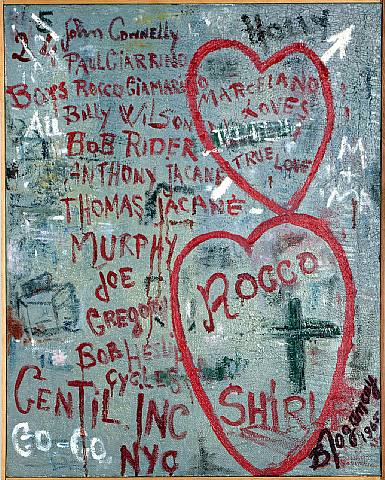 HOLLY
John Connelly
PAUL GIARRINO
BOYS ROCCO GIAMARINO
Billy WILSON
All
BOB RIDER
ANTHONY JACANE
THOMAS JACANE
MURPHY
JOE
GREGORY
BOB
CYCLES
GENTIL INC
GO-GO
NYC
MARCELANO
LOVES
TRUE LOVE
M
+
M
ROCCO
SHIRL
1965